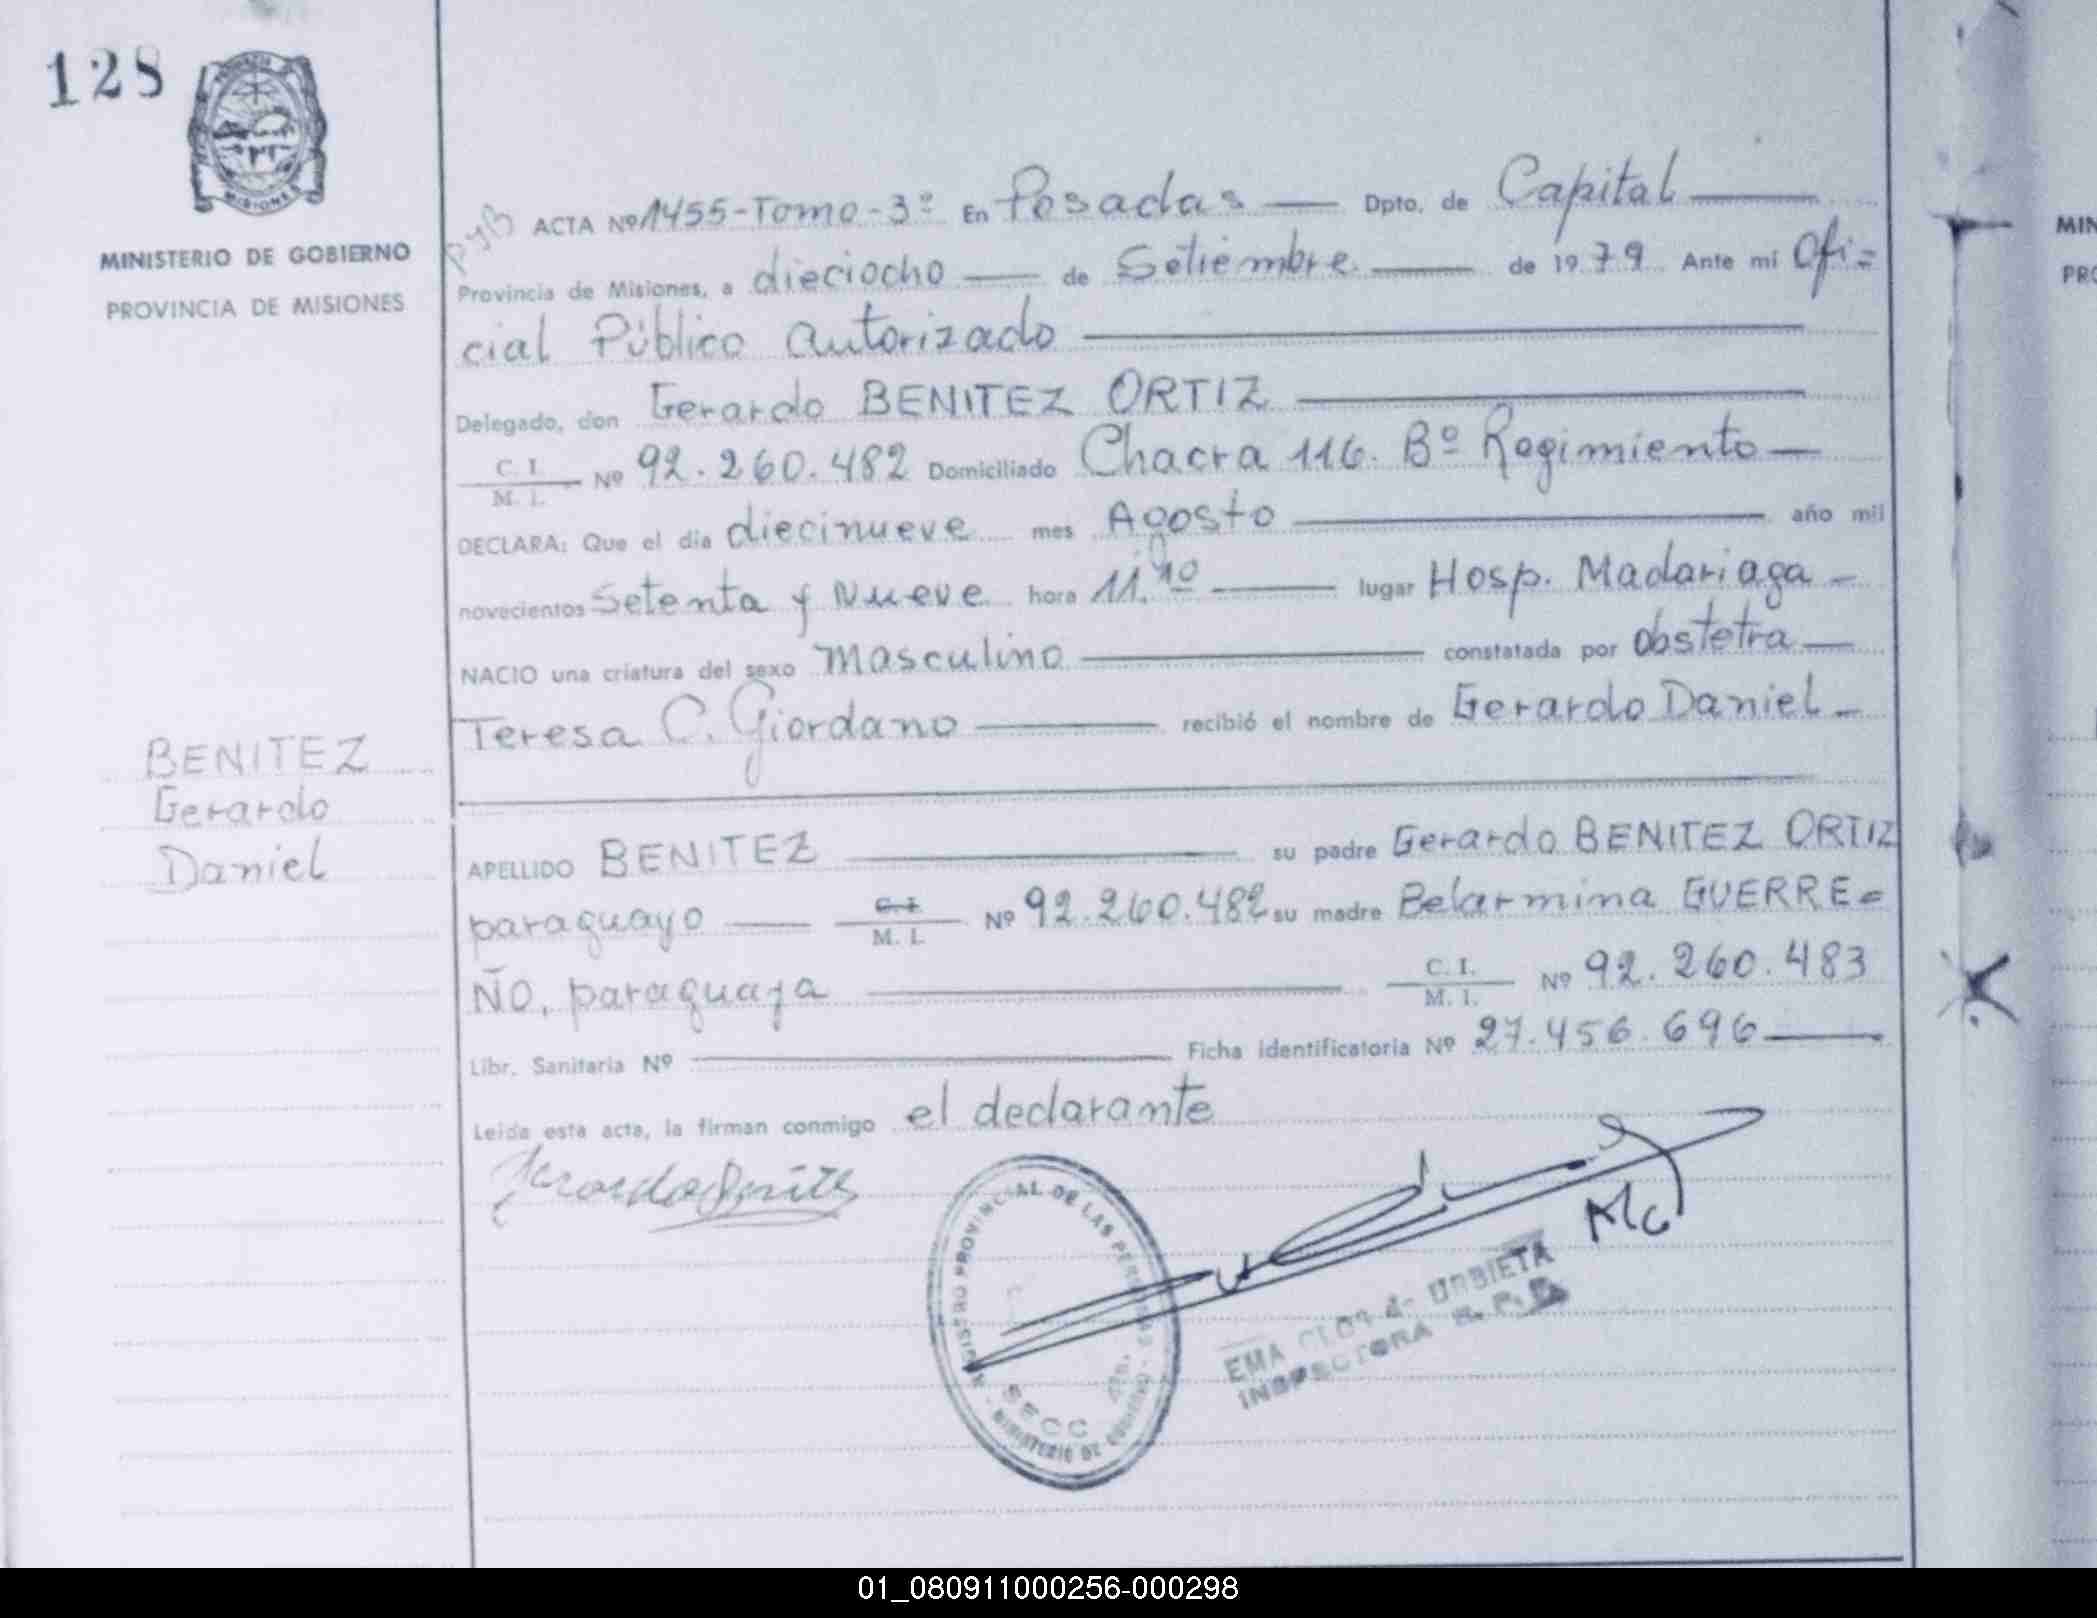 128
MISIONES
MINISTERIO DE GOBIERNO
PROVINCIA DE MISIONES
BENITEZ
Gerardo
Daniel
PyB
ACTA Nº 1455-Tomo-3º En Posadas — Dpto. de Capital —
Provincia de Misiones, a dieciocho — de Setiembre — de 1979 Ante mi Ofi=
cial Público autorizado —
Delegado, don Gerardo BENITEZ ORTIZ —
C. I. / M. I. Nº 92.260.482 Domiciliado Chacra 116. Bº Regimiento —
DECLARA: Que el día diecinueve mes Agosto — año mil
novecientos Setenta y Nueve hora 11.40 — lugar Hosp. Madariaga —
NACIO una criatura del sexo Masculino — constatada por obstetra —
Teresa C. Giordano — recibió el nombre de Gerardo Daniel —
APELLIDO BENITEZ — su padre Gerardo BENITEZ ORTIZ
paraguayo — C. I. / M. I. Nº 92.260.482 su madre Belarmina GUERRE=
ÑO, paraguaya — C. I. / M. I. Nº 92.260.483
Libr. Sanitaria Nº — Ficha identificatoria Nº 27.456.696 —
Leída esta acta, la firman conmigo el declarante
REGISTRO PROVINCIAL DE LAS PERSONAS
MINISTERIO DE GOBIERNO
SECC
EMA URBIETA
INSPECTORA R. P. P.
MIN
PRO
01_080911000256-000298